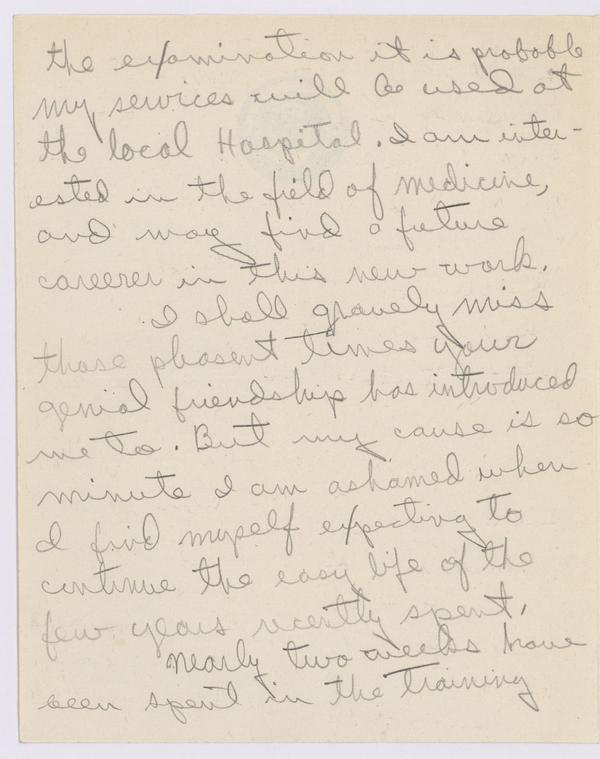 the examination it is probable
my services will be used at
the local Hospital. I am inter-
ested in the field of medicine,
and may find a future
careerer in this new work.
I shall gravely miss
those pleasent times your
genial friendship has introduced
me to. But my cause is so
minute I am ashamed when
I find myself expecting to
continue the easy life of the
few years recently spent.
Nearly two weeks have
been spent in the training